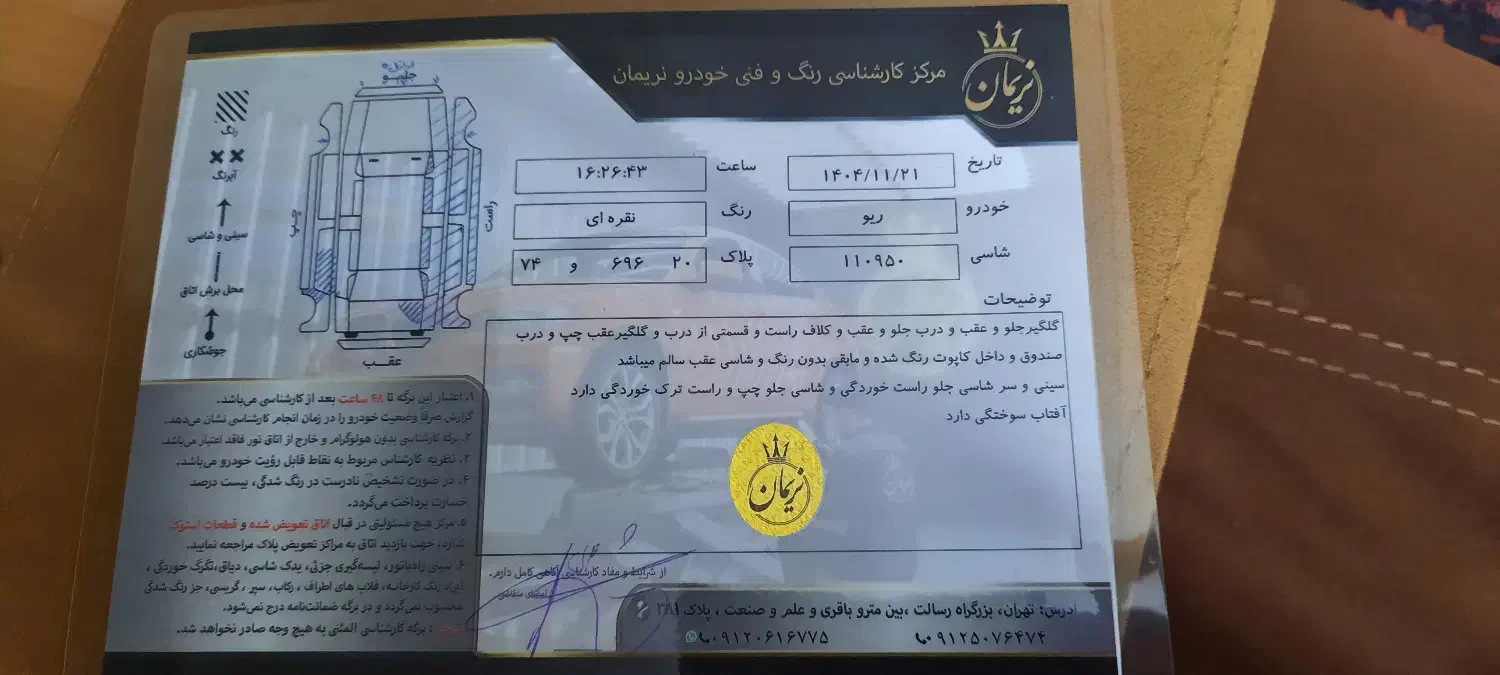 نریمان
مرکز کارشناسی رنگ و فنی خودرو نریمان
تاریخ ۱۴۰۴/۱۱/۲۱
ساعت ۱۶:۲۶:۴۳
خودرو ریو
رنگ نقره ای
شاسی ۱۱۰۹۵۰
پلاک ۲۰ ۶۹۶ و ۷۴
توضیحات
گلگیرجلو و عقب و درب جلو و عقب و کلاف راست و قسمتی از درب و گلگیرعقب چپ و درب
صندوق و داخل کاپوت رنگ شده و مابقی بدون رنگ و شاسی عقب سالم میباشد
سینی و سر شاسی جلو راست خوردگی و شاسی جلو چپ و راست ترک خوردگی دارد
آفتاب سوختگی دارد
نریمان
جلو
راست
چپ
عقب
رنگ
آبرنگ
سینی و شاسی
محل برش اتاق
جوشکاری
۱. اعتبار این برگه تا ۴۸ ساعت بعد از کارشناسی می‌باشد.
گزارش صرفاً وضعیت خودرو را در زمان انجام کارشناسی نشان می‌دهد.
۲. برگه کارشناسی بدون هولوگرام و خارج از اتاق نور فاقد اعتبار می‌باشد.
۳. نظریه کارشناس مربوط به نقاط قابل رؤیت خودرو می‌باشد.
۴. در صورت تشخیص نادرست در رنگ شدگی، بیست درصد
خسارت پرداخت می‌گردد.
۵. مرکز هیچ مسئولیتی در قبال اتاق تعویض شده و قطعات استوک
ندارد، جهت بازدید اتاق به مراکز تعویض پلاک مراجعه نمایید.
۶. سینی رادیاتور، لیسه‌گیری جزئی، یدک شاسی، دیاق، تگرگ خوردگی ،
ایراد رنگ کارخانه، قلاب های اطراف ، رکاب، سپر ، گریسی، جز رنگ شدگی
محسوب نمی‌گردد و در برگه ضمانت‌نامه درج نمی‌شود.
: برگه کارشناسی المثنی به هیچ وجه صادر نخواهد شد.
از شرایط و مفاد کارشناسی آگاهی کامل دارم.
امضای متقاضی
آدرس: تهران، بزرگراه رسالت ،بین مترو باقری و علم و صنعت ، پلاک ۳۸۱
۰۹۱۲۵۰۷۶۴۷۴
۰۹۱۲۰۶۱۶۷۷۵